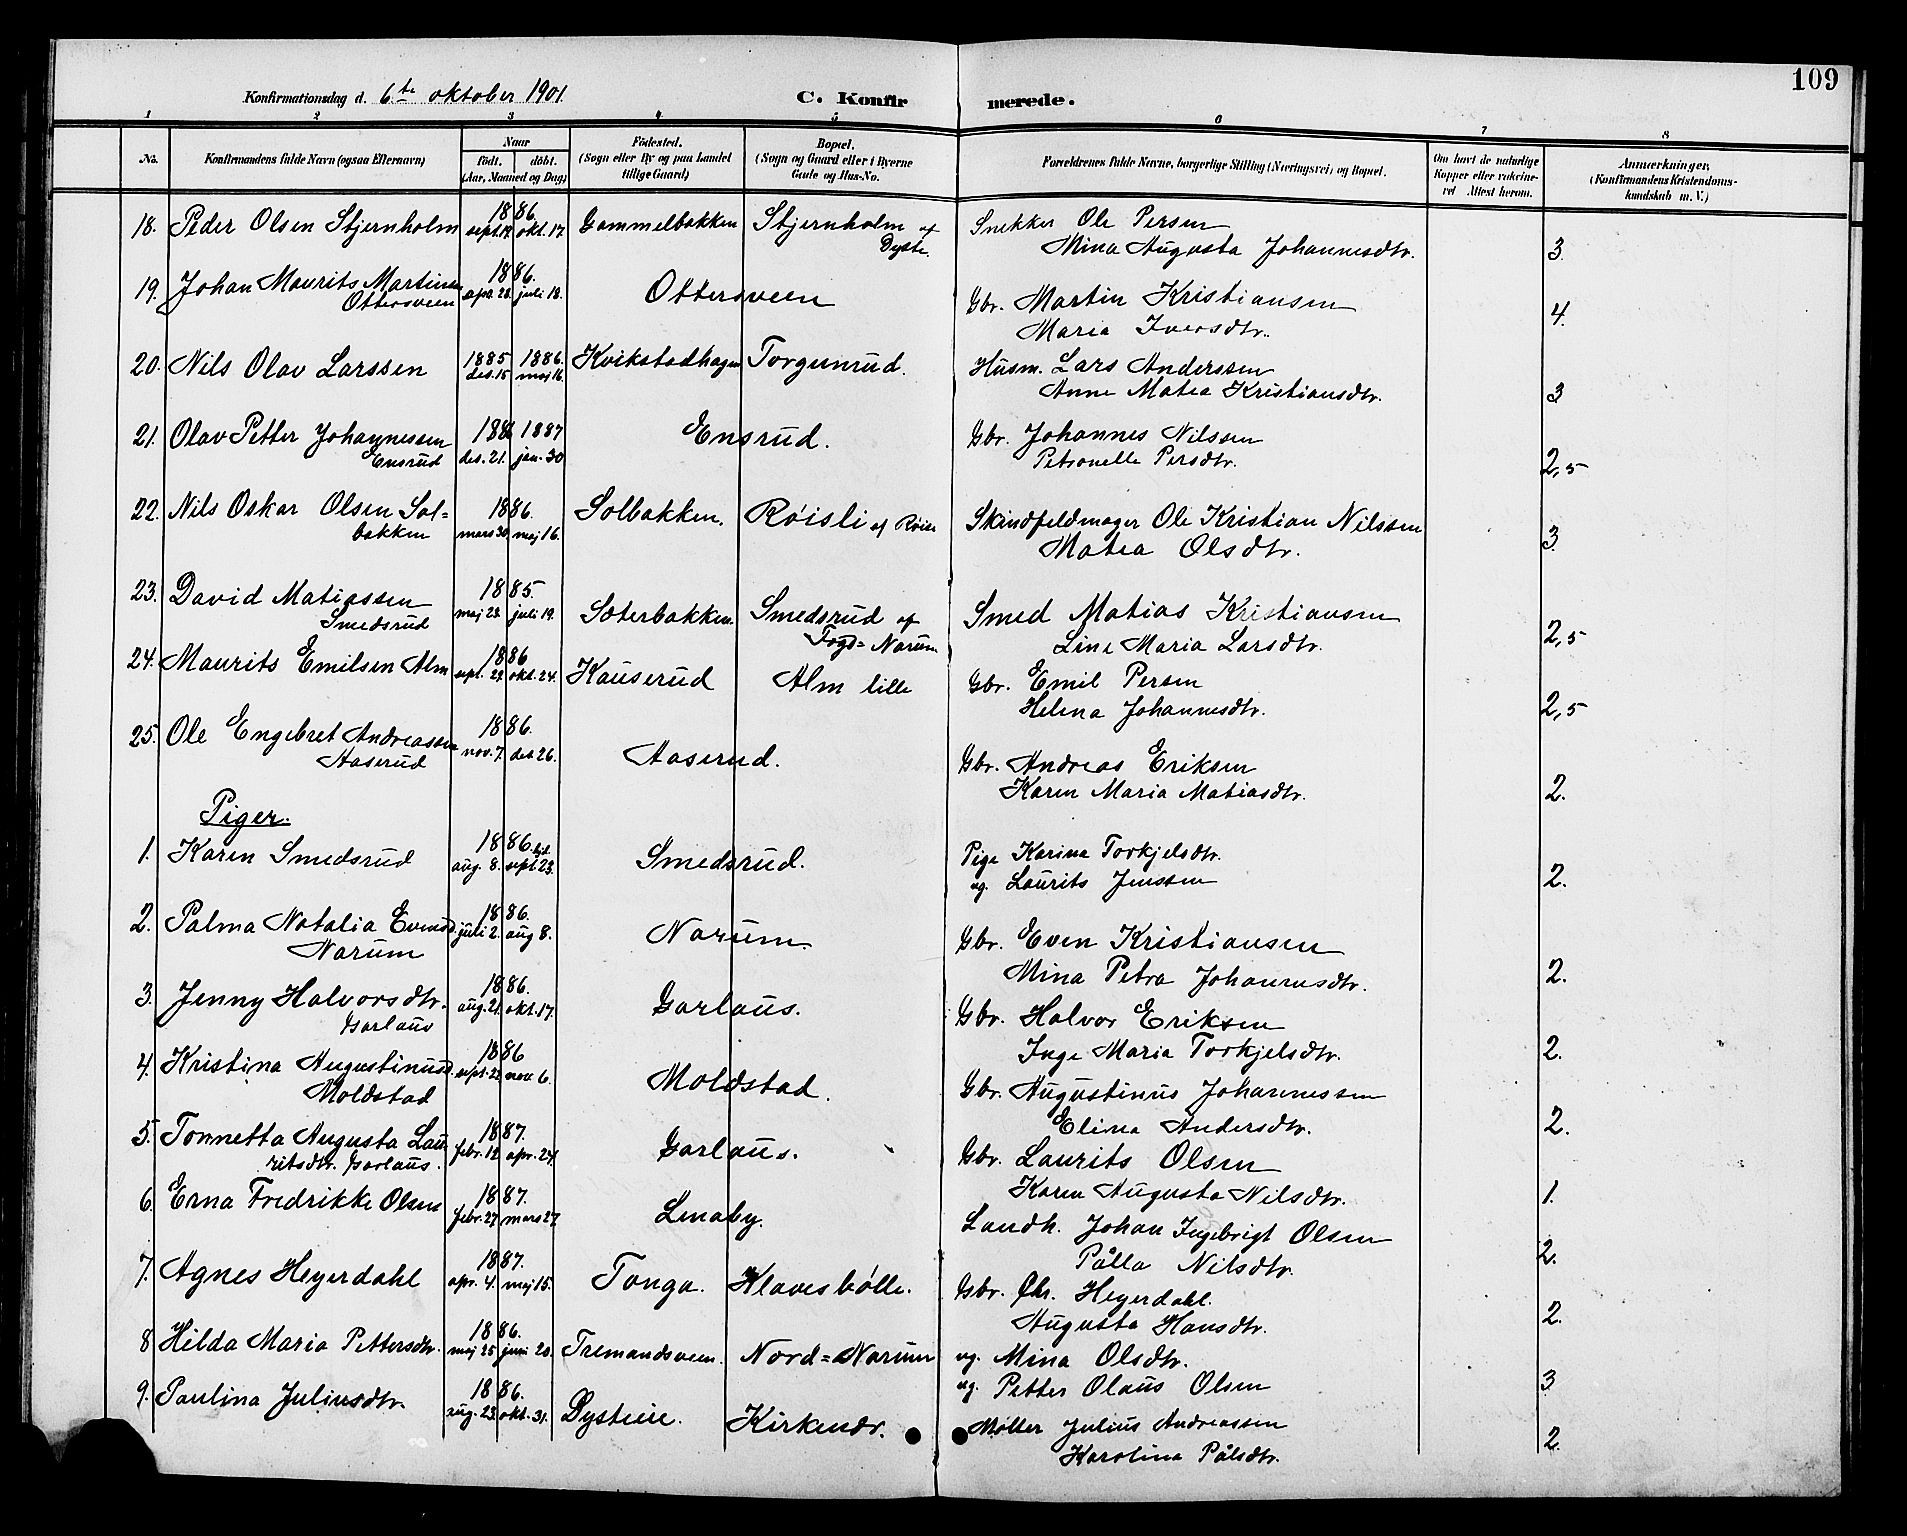 109
Konfirmationsdag d. 6te oktober 1901. C. Konfirmerede.
1 2 3 4 5 6 7 8
No. Konfirmandens fulde Navn (ogsaa Efternavn) Naar født. døbt. (Aar, Maaned og Dag) Fødested. (Sogn eller By og paa Landet tillige Gaard) Bopæl. (Sogn og Gaard eller i Byerne Gade og Hus-No. Forældrenes fulde Navne, borgerlige Stilling (Næringsvei) og Bopæl. Om havt de naturlige Kopper eller vakcineret Attest herom. Anmærkninger, (Konfirmandens Kristendomskundskab m. V.)
18. Peder Olsen Stjernholm 1886. sept. okt. 17. Gammelbakken Stjernholm af Dyste. Snekker Ole Persen
Mina Augusta Johannesdtr. 3.
19. Johan Maurits Martinsen Ottersveen 1886. apr. 20. juli 18. Ottersveen Gbr. Martin Kristiansen
Maria Iversdtr. 4.
20. Nils Olav Larssen 1885 des. 15 1886. maj 16. Kvikstadhagen Torgunrud. Husm. Lars Anderssen
Anne Matea Kristiansdtr. 3
21. Olav Petter Johannessen Ensrud 1886 des. 21. 1887 jan. 30 Ensrud. Gbr. Johannes Nilssen
Petronelle Persdtr. 2,5
22. Nils Oskar Olsen Sol=
bakken 1886. mars 30. maj 16. Solbakken. Røisli af Røise Skindfeldmager Ole Kristian Nilssen
Matea Olsdtr. 3.
23. David Matiassen Smedsrud 1885. maj 23. juli 19. Sæterbakken. Smedsrud af Fogd=Narum Smed Matias Kristiansen
Line Maria Larsdtr. 2,5
24. Maurits Emilsen Alm 1886 sept. okt. 24. Kauserud Alm lille Gbr. Emil Persen
Helena Johannesdtr. 2,5
25. Ole Engebret Andreassen Aaserud 1886. nov. 7. des. 26. Aaserud. Gbr. Andreas Eriksen
Karen Maria Matiasdtr. 2.
Piger.
1. Karen Smedsrud 1886. aug. 8. sept. 23. Smedsrud. Pige Karina Torkjelsdtr.
ug. Laurits Jenssen 2.
2. Palma Natalia Evensd. Narum 1886. juli 2. aug 8. Narum. Gbr. Even Kristiansen
Mina Petra Johannesdtr. 2.
3. Jenny Halvorsdtr. Garlaus 1886. aug. 21. okt. 17. Garlaus. Gbr. Halvor Eriksen
Inge Maria Torkjelsdtr. 2.
4. Kristina Augustinusd. Moldstad 1886 sept. 22. nov. 6. Moldstad. Gbr. Augustinus Johannessen
Elina Andersdtr. 2.
5. Tonnetta Augusta Lau
ritsdtr. Garlaus. 1887. febr. 12. apr. 24. Garlaus. Gbr. Laurits Olsen
Karen Augusta Nilsdtr. 1.
6. Erna Fredrikke Olsen 1887. febr. 27. mars 27. Lenaby. Landh. Johan Ingebrigt Olsen
Pålla Nilsdtr. 2.
7. Agnes Heyerdahl 1887. apr. 4. maj 15. Tonga. Klavesbølle. Gbr. Chr. Heyerdahl.
Augusta Hansdtr. 2.
8 Hilda Maria Pettersdtr. 1886. maj 25. juni 20. Tremandsveen. Nord=Narum ug. Mina Olsdtr.
ug. Petter Olaus Olsen 3
9. Paulina Juliusdtr. 1886. aug. 23. okt. 31. Dysteeie. Kirkendr. Møller Julius Andreassen
Karolina Pålsdtr. 2.